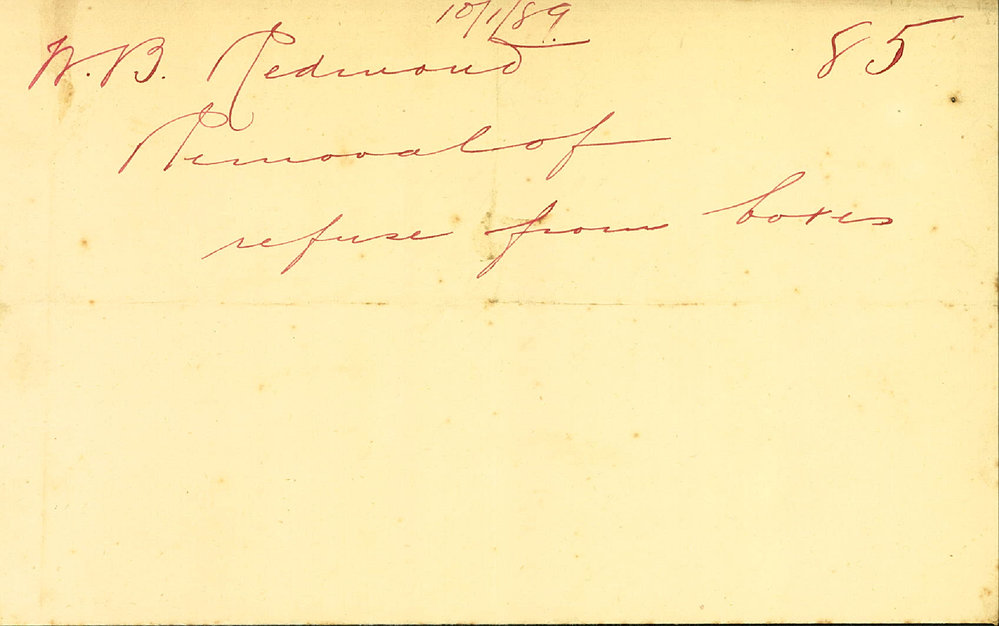 10/1/89
W.B. Redmond 85
Removal of
refuse from boxes